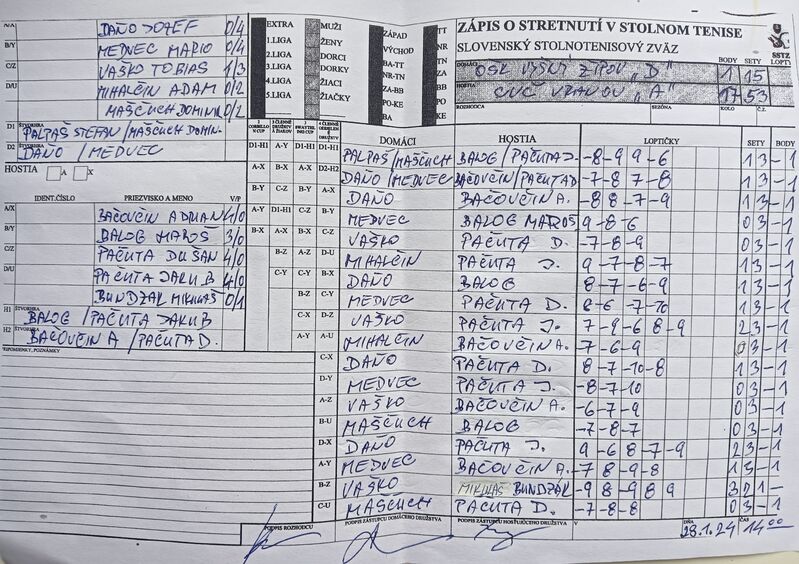 ZÁPIS O STRETNUTÍ V STOLNOM TENISE
SLOVENSKÝ STOLNOTENISOVÝ ZVÄZ
SSTZ
DOMÁCI BODY SETY LOPT.
OSK VYŠNÝ ŽIPOV "D" 1 15
HOSTIA
CVČ VRANOV "A" 17 53
ROZHODCA SEZÓNA KOLO Č.Z.
EXTRA
1.LIGA
2.LIGA
3.LIGA
4.LIGA
5.LIGA
MUŽI
ŽENY
DORCI
DORKY
ŽIACI
ŽIAČKY
ZÁPAD
VÝCHOD
BA-TT
NR-TN
ZA-BB
PO-KE
BA
TT
TN
NR
ZA
BB
PO
KE
N/A DAŇO JOZEF 0/4
B/Y MEDVEC MARIO 0/4
C/Z VAŠKO TOBIAS 1/3
D/U MIHALČIN ADAM 0/2
MAŠČUCH DOMINIK 0/2
D1 ŠTVORHRA PALPAŠ STEFAN/MAŠČUCH DOMIN.
D2 ŠTVORHRA DAŇO / MEDVEC
HOSTIA A X
IDENT.ČÍSLO PRIEZVISKO A MENO V/P
A/X BAČOVČIN ADRIAN 4/0
B/Y BALOG MAROŠ 3/0
C/Z PAČUTA DUŠAN 4/0
D/U PAČUTA JAKUB 4/0
BUNDZÁK MIKULÁŠ 0/1
H1 ŠTVORHRA BALOG / PAČUTA JAKUB
H2 ŠTVORHRA BAČOVČIN A / PAČUTA D.
PRIPOMIENKY, POZNÁMKY
DOMÁCI HOSTIA LOPTIČKY SETY BODY
D1-H1 PALPAŠ/MAŠČUCH BALOG/PAČUTA J. -8-9 9-6 13-1
D2-H2 DAŇO/MEDVEC BAČOVČIN/PAČUTA D -7-8 7-8 13-1
A-X DAŇO BAČOVČIN A. -8 8-7-9 13-1
B-Y MEDVEC BALOG MAROŠ 9-8-6 03-1
C-Z VAŠKO PAČUTA D. -7-8-9 03-1
D-U MIHALČIN PAČUTA J. 9-7-8-7 13-1
A-Y DAŇO BALOG 8-7-6-9 13-1
B-X MEDVEC PAČUTA D. 8-6 7-10 13-1
VAŠKO PAČUTA J. 7-9-6 8-9 23-1
A-U MIHALČIN BAČOVČIN A. -7-6-9 03-1
C-X DAŇO PAČUTA D. 8-7-10-8 13-1
D-Y MEDVEC PAČUTA J. -8-7-10 03-1
A-Z VAŠKO BAČOVČIN A. -6-7-9 03-1
B-U MAŠČUCH BALOG -7-8-7 03-1
D-X DAŇO PAČUTA J. 9-6 8-7-9 23-1
A-Y MEDVEC BAČOVČIN A. -7 8-9-8 13-1
B-Z VAŠKO MIKULÁŠ BUNDZÁK -9 8-9 8 9 321-
C-U MAŠČUCH PAČUTA D. -7-8-8 03-1
PODPIS ROZHODCU PODPIS ZÁSTUPCU DOMÁCEHO DRUŽSTVA PODPIS ZÁSTUPCU HOSŤUJÚCEHO DRUŽSTVA V DŇA 28.1.24 ČAS 14 00